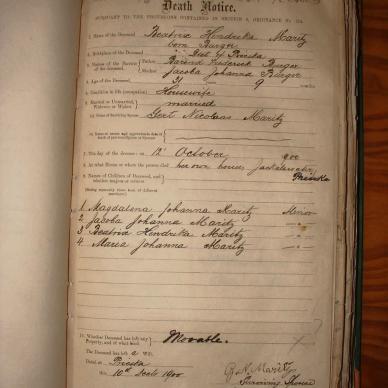 Death Notice.
PURSUANT TO THE PROVISIONS CONTAINED IN SECTION 9, ORDINANCE No. 104.
1. Name of the Deceased Beatrix Hendrika Maritz
born Burger
2. Birthplace of the Deceased Dist of Prieska
3. Names of the Parents of the deceased. Father Barend Frederick Burger
Mother Jacoba Johanna Burger
4. Age of the Deceased 31 years 9 months
5. Condition in life (occupation) Housewife
6. Married or Unmarried, Widower or Widow married
Name of Surviving Spouse Gert Nicolaas Maritz
7. The day of the decease: on 12th October 1900
8. At what House or where the person died her own house, Jackalswater
Prieska
9. Names of Children of Deceased, and whether majors or minors
1 Magdalena Johanna Maritz Minor
2 Jacoba Johanna Maritz
3 Beatrix Hendrika Maritz
4 Maria Johanna Maritz
10. Whether Deceased has left any Property, and of what kind Movable.
The Deceased has left a Will.
Dated at Prieska
this 10th 1900
G. N. Maritz
Surviving Spouse